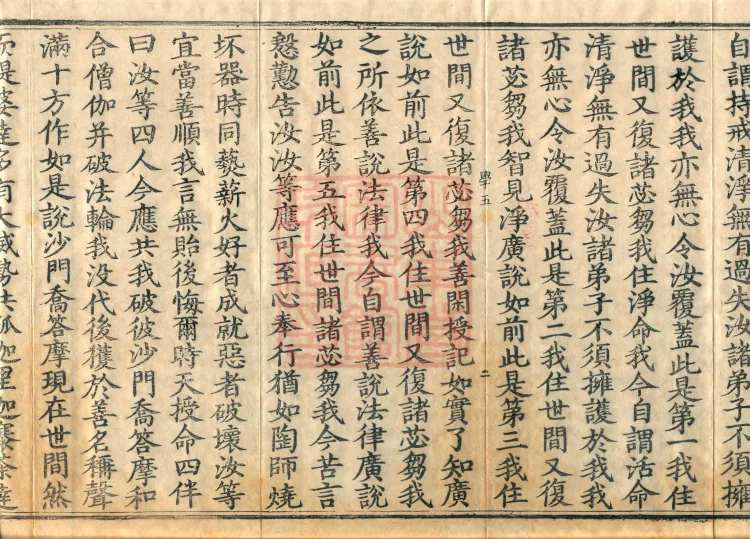 自謂持戒清淨無有過失汝諸弟子不須擁
護於我我亦無心令汝覆蓋此是第一我住
世間又復諸苾芻我住淨命我今自謂活命
清淨無有過失汝諸弟子不須擁護於我我
亦無心令汝覆蓋此是第二我住世間又復
諸苾芻我智見淨廣說如前此是第三我住
學五 二
世間又復諸苾芻我善閑授記如實了知廣
說如前此是第四我住世間又復諸苾芻我
之所依善說法律我今自謂善說法律廣說
如前此是第五我住世間諸苾芻我今苦言
慇懃告汝汝等應可至心奉行猶如陶師燒
坏器時同爇薪火好者成就惡者破壞汝等
宜當善順我言無貽後悔爾時天授命四伴
曰汝等四人今應共我破彼沙門喬答摩和
合僧伽并破法輪我没代後獲於善名稱聲
滿十方作如是說沙門喬答摩現在世間然
而提婆達多有大威勢共孤迦里迦褰荼達